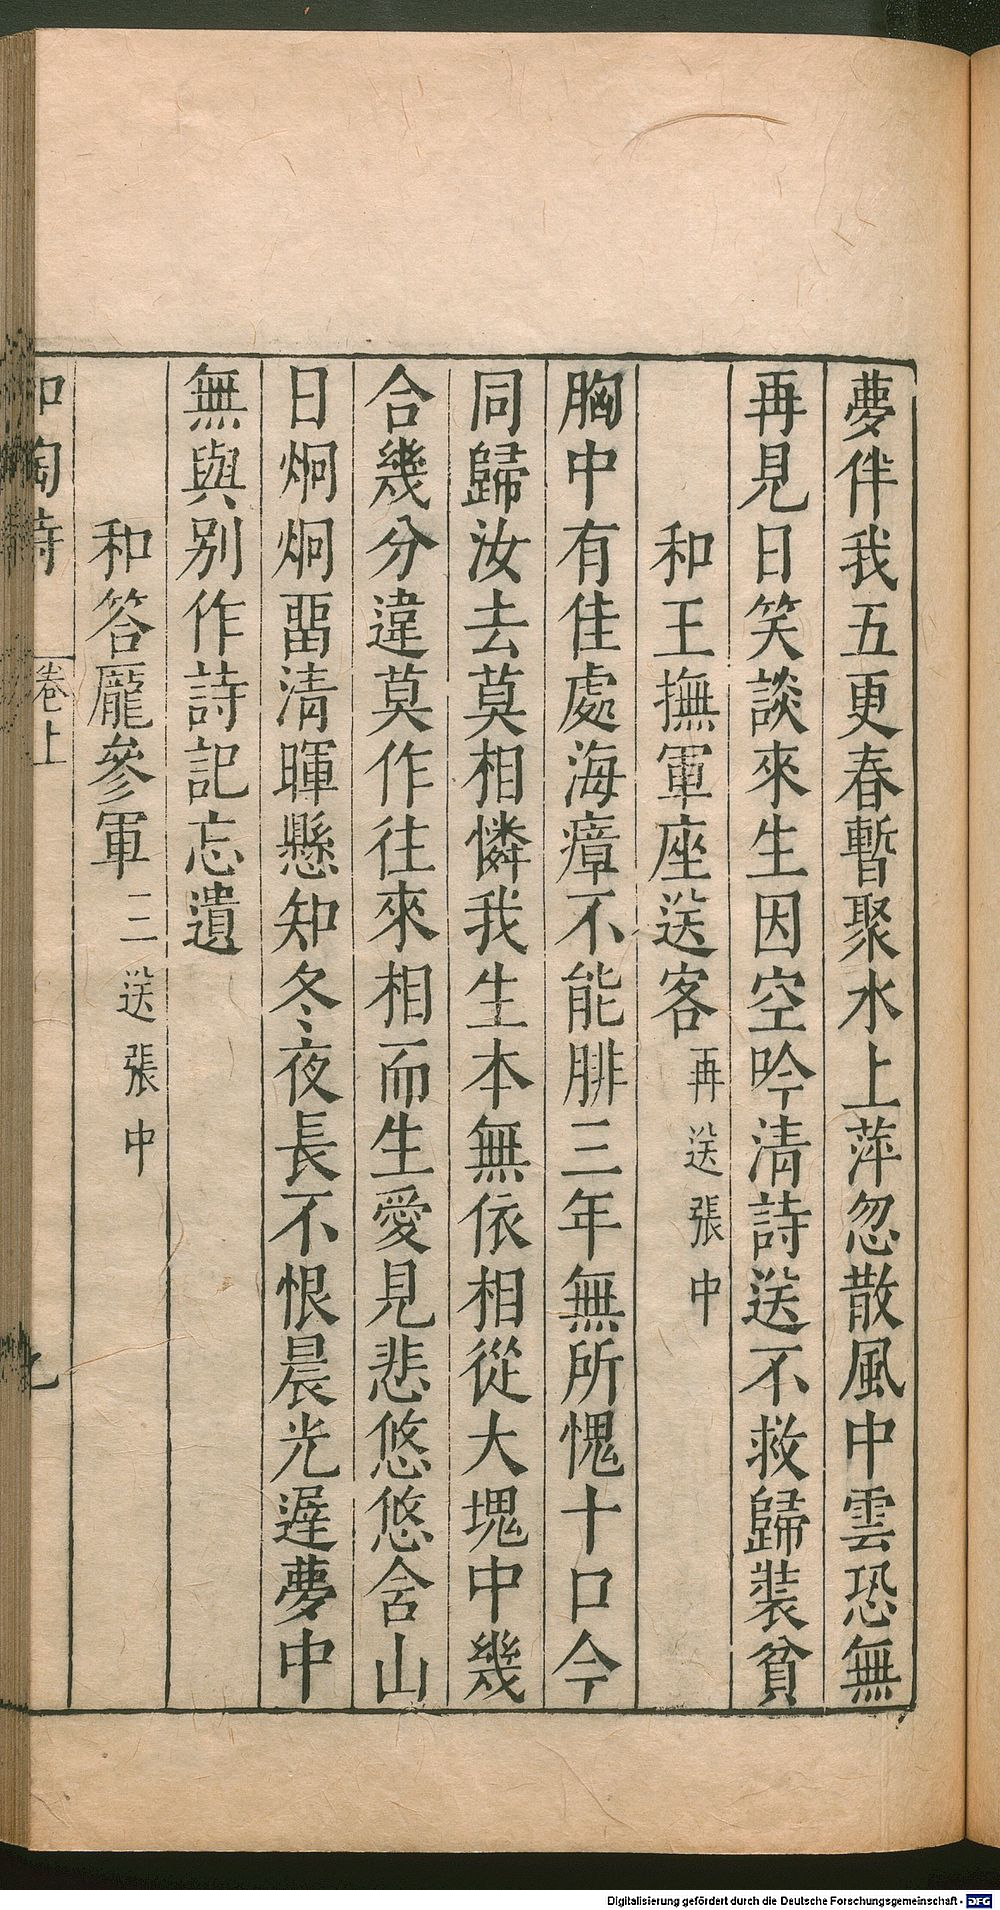 夢伴我五更春暫聚水上萍忽散風中雲恐無
再見日笑談來生因空吟清詩送不救歸裝貧
和王撫軍座送客 再送張中
胸中有佳處海瘴不能腓三年無所愧十口今
同歸汝去莫相憐我生本無依相從大塊中幾
合幾分違莫作往來相而生愛見悲悠悠含山
日炯炯畱清暉懸知冬夜長不恨晨光遲夢中
無與別作詩記忘遺
和答龐參軍 三送張中
和陶詩 卷上 九
Digitalisierung gefördert durch die Deutsche Forschungsgemeinschaft - DFG